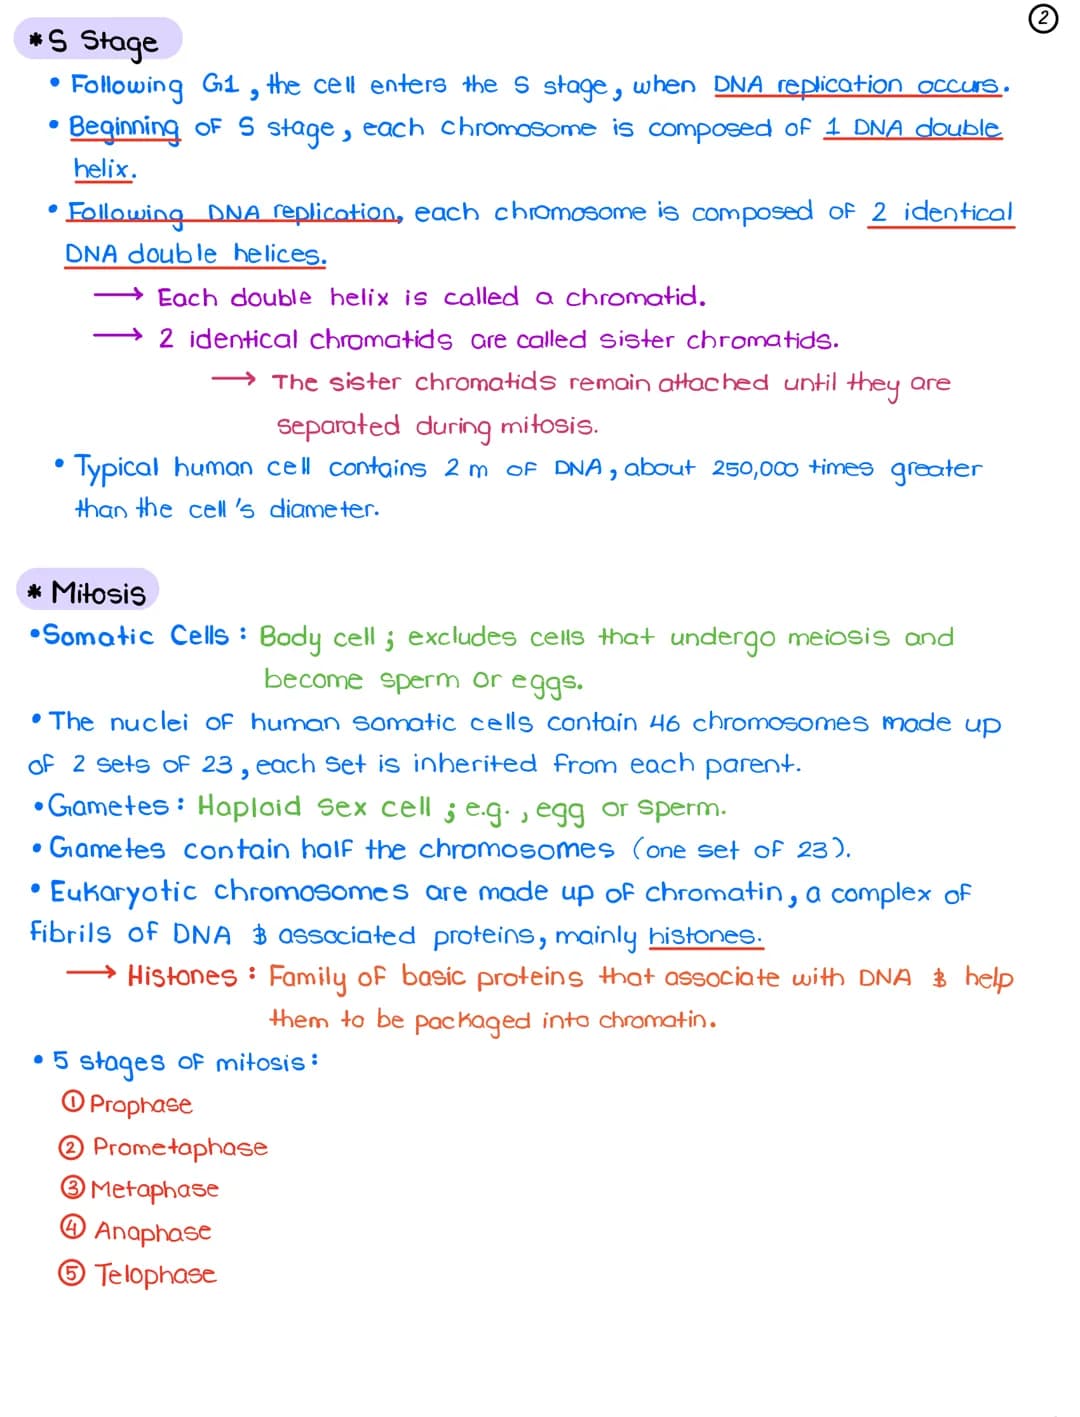 2
* S Stage
• Following G1, the cell enters the S stage, when DNA replication occurs.
• Beginning of S stage, each chromosome is composed of 1 DNA double
helix.
• Following DNA replication, each chromosome is composed of 2 identical
DNA double helices.
→ Each double helix is called a chromatid.
→ 2 identical chromatids are called sister chromatids.
→ The sister chromatids remain attached until they are
separated during mitosis.
• Typical human cell contains 2 m of DNA, about 250,000 times greater
than the cell's diameter.
* Mitosis
• Somatic Cells: Body cell; excludes cells that undergo meiosis and
become sperm or eggs.
• The nuclei of human somatic cells contain 46 chromosomes made up
of 2 sets of 23, each set is inherited from each parent.
• Gametes: Haploid sex cell; e.g., egg or sperm.
• Gametes contain half the chromosomes (one set of 23).
• Eukaryotic chromosomes are made up of chromatin, a complex of
fibrils of DNA & associated proteins, mainly histones.
→ Histones: Family of basic proteins that associate with DNA & help
them to be packaged into chromatin.
• 5 stages of mitosis:
① Prophase
② Prometaphase
③ Metaphase
④ Anaphase
⑤ Telophase